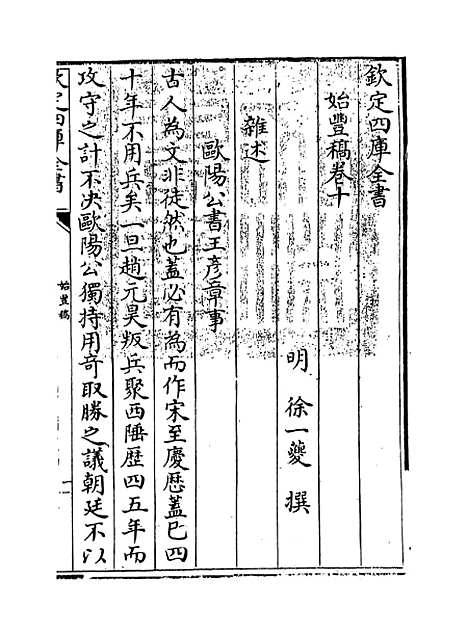 欽定四庫全書
始豐稿卷十
明 徐一夔 撰
雜述
歐陽公書王彦章事
古人為文非徒然也蓋必有為而作宋至慶歴蓋已四
十年不用兵矣一旦趙元昊叛兵聚西陲歴四五年而
攻守之計不决歐陽公獨持用奇取勝之議朝廷不以
欽定四庫全書
始豐稿